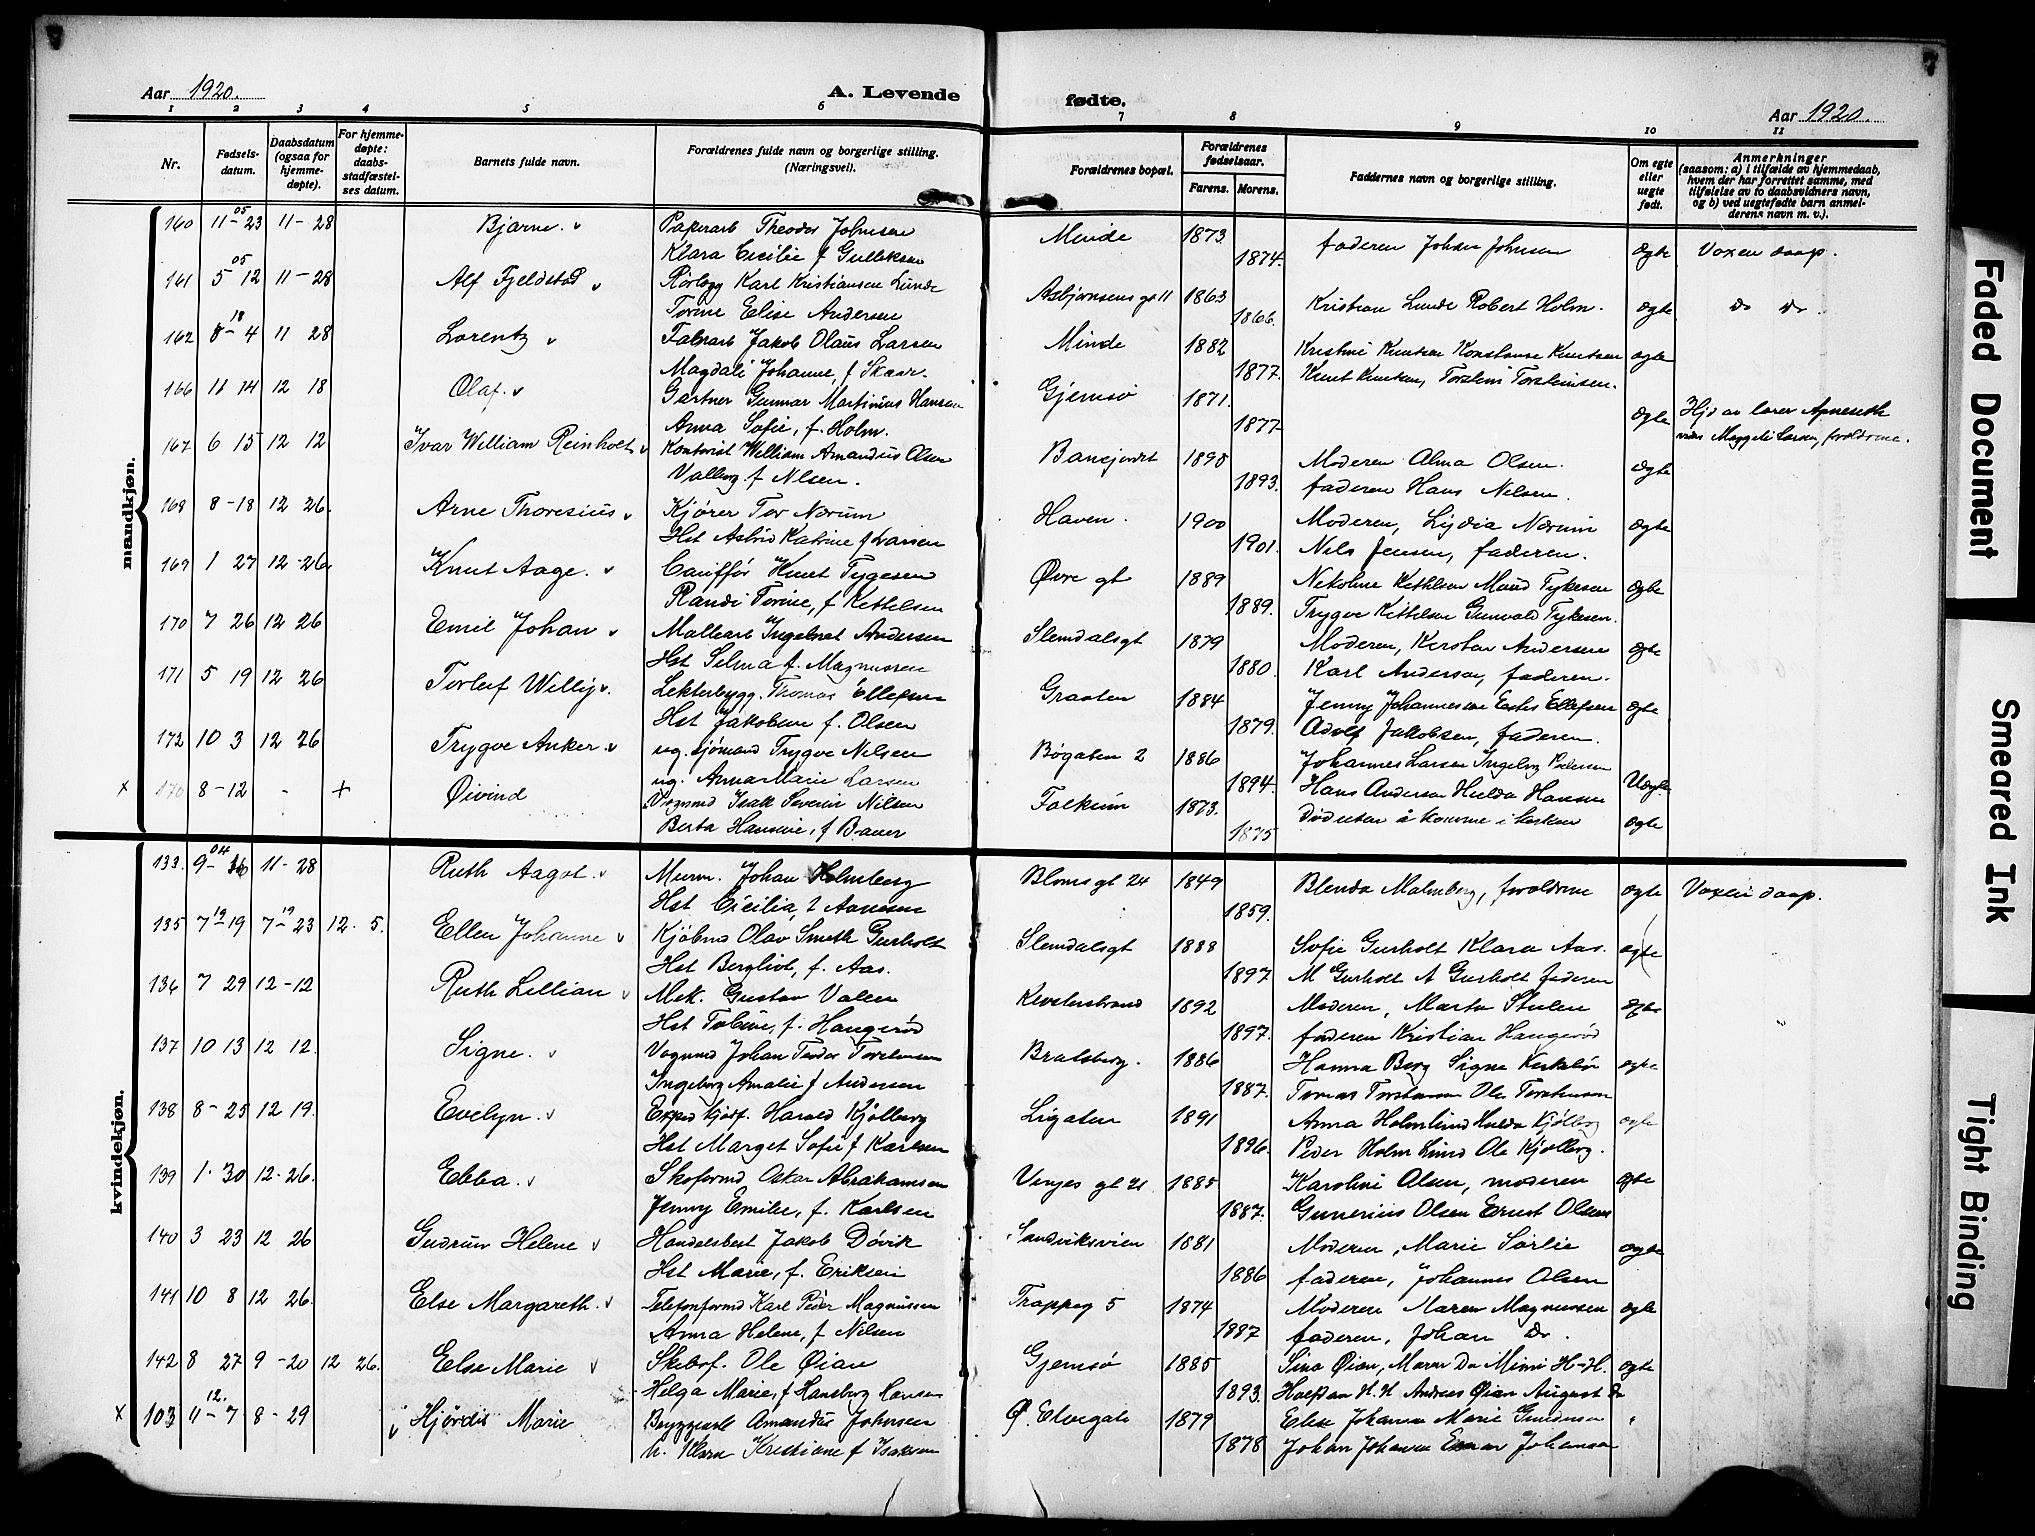 Aar 1920.
A. Levende
fødte.
Aar 1920.
1 2 3 4 5 6 7 8 9 10 11
Nr.
Fødsels-
datum.
Daabsdatum
(ogsaa for
hjemme-
døpte).
For hjemme-
døpte:
daabs-
stadfæstel-
ses datum.
Barnets fulde navn.
Forældrenes fulde navn og borgerlige stilling.
(Næringsvei).
Forældrenes bopæl.
Forældrenes
fødselsaar.
Farens. Morens.
Faddernes navn og borgerlige stilling.
Om egte
eller
uegte
født.
Anmerkninger
(saasom: a) i tilfælde av hjemmedaab,
hvem der har forrettet samme, med
tilføielse av to daabsvidners navn,
og b) ved uegtefødte barn anmel-
derens navn m. v.).
mandkjøn.
160 11-05 23 11-28 Bjarne. Theodor Johnsen Minde 1873. faderen Johan Johnsen ægte Voxen daap.
Klara Cicilie f Gulliksen 1874.
161 5 05 12 11-28 Alf Fjeldstad Rørlegg Karl Kristiansen Lunde Asbjørnsens gt 11 1863 Kristian Lunde Robert Holm. ægte Do Do
Torine Elise Andersen 1866.
162 8-18 4 11 28 Lorentz Fabrarb Jakob Olaus Larsen Minde 1882 Kristine Knutsen Konstanse Knutsen ægte
Magdali Johanne, f Skaar. 1877. Knut Knutsen, Torstein Torsteinsen.
166 11 14 12 18 Olaf. Gartner Gunnar Martinius Hansen Gjemsø 1871. ægte Hjd av lærer Apneseth
Anna Sofie, f. Holm. 1877 Larsen, forældrene.
167 6 15 12 12 Ivar William Reinholt Kontorist William Amandus Olsen 1898 Moderen Alma Olsen. ægte
Valborg f Nilsen. 1893. faderen Hans Nilsen.
168 8-18 12 26. Arne Thoresius Kjører Tor Narum Haven. 1900 Moderen, Lydia Narum ægte
Hst Astrid Katrine f Larsen 1901. Nils Jensen, faderen.
169 1 27 12-26 Knut Aage. Knut Tygesen Øvre gt 1889 Nikoline Kittilsen Maud Tykesen ægte
Randi Torine, f Kittelsen 1889. Trygve Kittelsen Gunvald Tykesen.
170 7 26 12 26 Emil Johan Ingebret Andersen Slemdalsgt 1879 Moderen, Andersen ægte
Hst Selma f. Magnussen 1880. Karl Andersen, faderen.
171 5 19 12 26 Torleif Willy. Lekterbygg. Thomas Ellefsen Graaten 1884 Jenny Johannesen Ellefsen ægte
Hst Jakobine f. Olsen 1879. Adolf Jakobsen, faderen.
172 10 3 12 26 Trygve Anker. ug. sjømand Trygve Nilsen Bøgaten 2 1886 Johannes Larsen Ingeborg Pedersen Uægte
ug. Anna Marie Larsen 1894. Hans Andersen Hulda Hansen
x 170 8-12 - + Øivind Isak Severin Nilsen Falkum 1873. Død uten å komme i kirken ægte
Berta Hansine, f Bauer 1875
kvindekjøn.
133. 9-04 11-28 Ruth Aagot. Murm. Johan Holmberg Blomsgt 24 1849 Blenda Malmberg, forældrene ægte Voxen daap.
Hst Cicilia, f Aanesen 1859.
135 7 12 19 7-19 23 12. 5. Ellen Johanne Kjøbmd Olav Smith Gurholt Slemdalsgt 1888 Sofie Gurholt Klara Aas. ægte
Hst Bergliot, f. Aas. 1897 M Gurholt A Gurholt faderen
136 7 29 12-12 Ruth Lillian Mek. Gustav Valen 1892 Moderen, Marta Stulen ægte
Hst Tobine, f. Haugerød 1897. faderen Kristian Haugerød
137 10 13 12 12. Signe. Vognmd Johan Teodor Torstensen Bratsberg. 1886 Hanna Berg Signe ægte
Ingeborg Amalie f Andersen 1887. Tomas Torstensen Ole Torstensen
138 8-25 12 19. Evelyn. Exped Harald Kjølberg Ligaten 1891 Anna Holmlund Hulda Kjølberg ægte
Hst Marget Sofie f Karlsen 1896. Peder Holmlund Ole Kjølberg.
139 1. 30 12.26. Ebba. Skoformd Oskar Abrahamsen Vinjes gt 21 1885 Karoline Olsen, moderen ægte
Jenny Emilie, f. Karlsen 1887. Gunerius Olsen Ernst Olsen
140 3 23 12 26 Gudrun Helene Handelsbest Jakob Døvik Sandviksvien 1881 Moderen, Marie Sørlie ægte
Hst Marie, f. Eriksen 1886 faderen, Johannes Olsen
141 10 8 12 26. Else Margareth. Telefonformd Karl Peder Magnussen Trappeg 5 1874 Moderen Maren Magnussen ægte
Anna Helene, f Nilsen 1887 faderen, Johan Do.
142 8 27 9-20 12 26. Else Marie Skibsf. Ole Øian Gjemsø 1885 Sina Øian, Maren Do Mimi H-H. ægte
Helga Marie, f Hansborg Hansen 1893. Halfdan H.H Andreas Øian August Do
x 103 11-12. 7 8-29 Hjørdis Marie Bryggearb Amandus Johnsen Ø. Elvegate 1879 Else Johansen Marie Gundersen "
h. Klara Kristiane f Isaksen 1878 Johan Johansen Einar Johansen
Faded Document
Smeared Ink
Tight Binding